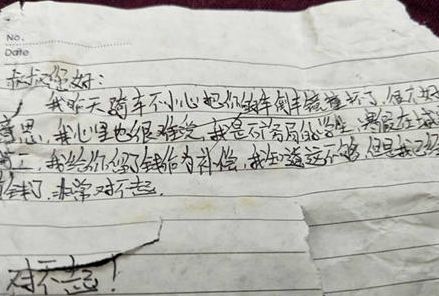 No.
Date
叔叔您好:
我昨天骑车不小心把你的车倒车镜撞坏了,很不好
意思,我心里也很难受,我是不 学生,寒假在
工,我给你留了 钱作为补偿,我知道这不够,但是我已经
钱了,非常对不起。
对不起!